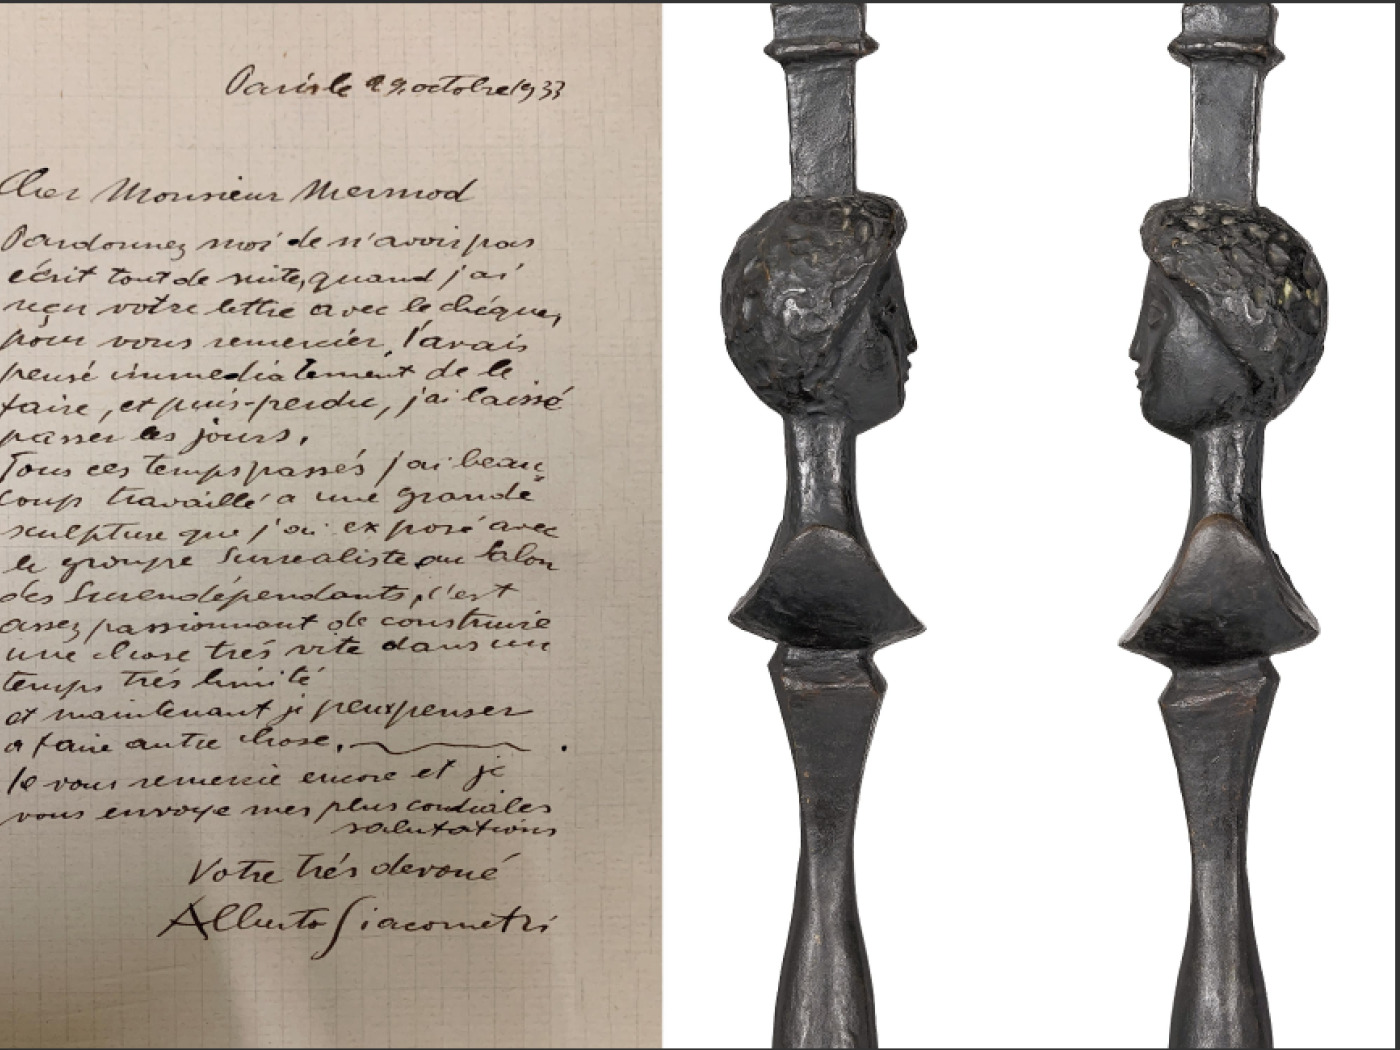 Paris le 29. octobre 1933
Cher Monsieur Mermod
Pardonnez moi de n'avoir pas
écrit tout de suite, quand j'ai
reçu votre lettre avec le chéque,
pour vous remercier, l'avais
pensé immediatement de le
faire, et puis-perdu, j'ai laissé
passer les jours.
Tous ces temps passés j'ai beau-
coup travaillé a une grande
sculpture que j'ai exposé avec
le groupe Surrealiste au Salon
des Surendépendants, c'est
assez passionnant de construire
une chose trés vite dans un
temps trés limité
et maintenant je peux penser
a faire autre chose.
Je vous remercie encore et je
vous envoye mes plus cordiales
salutations
Votre trés devoué
Alberto Giacometti